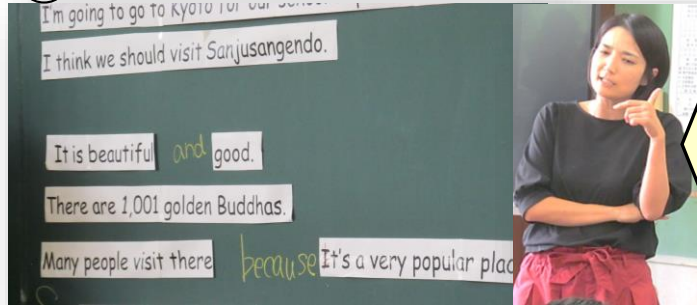 I'm going to go to Kyoto for our
I think we should visit Sanjusangendo.
It is beautiful and good.
There are 1,001 golden Buddhas.
Many people visit there because It's a very popular plac